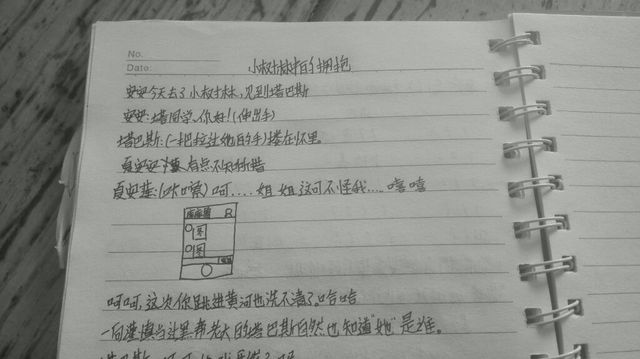 No.
Date:
小树林的拥抱
安安今天去了小树林,见到塔巴斯
安安:塔同学,你好!(伸出手)
塔巴斯:(一把拉过她的手)搂在怀里。
夏安安 有点不知所措
夏安 :(咔嚓)呵....姐姐这可不怪我....嘻嘻
图
图
呵呵,这次你跳进黄河也洗不清了。哈哈
一向谨慎当过黑帮老大的塔巴斯自然也知道"她"是谁。
塔巴斯